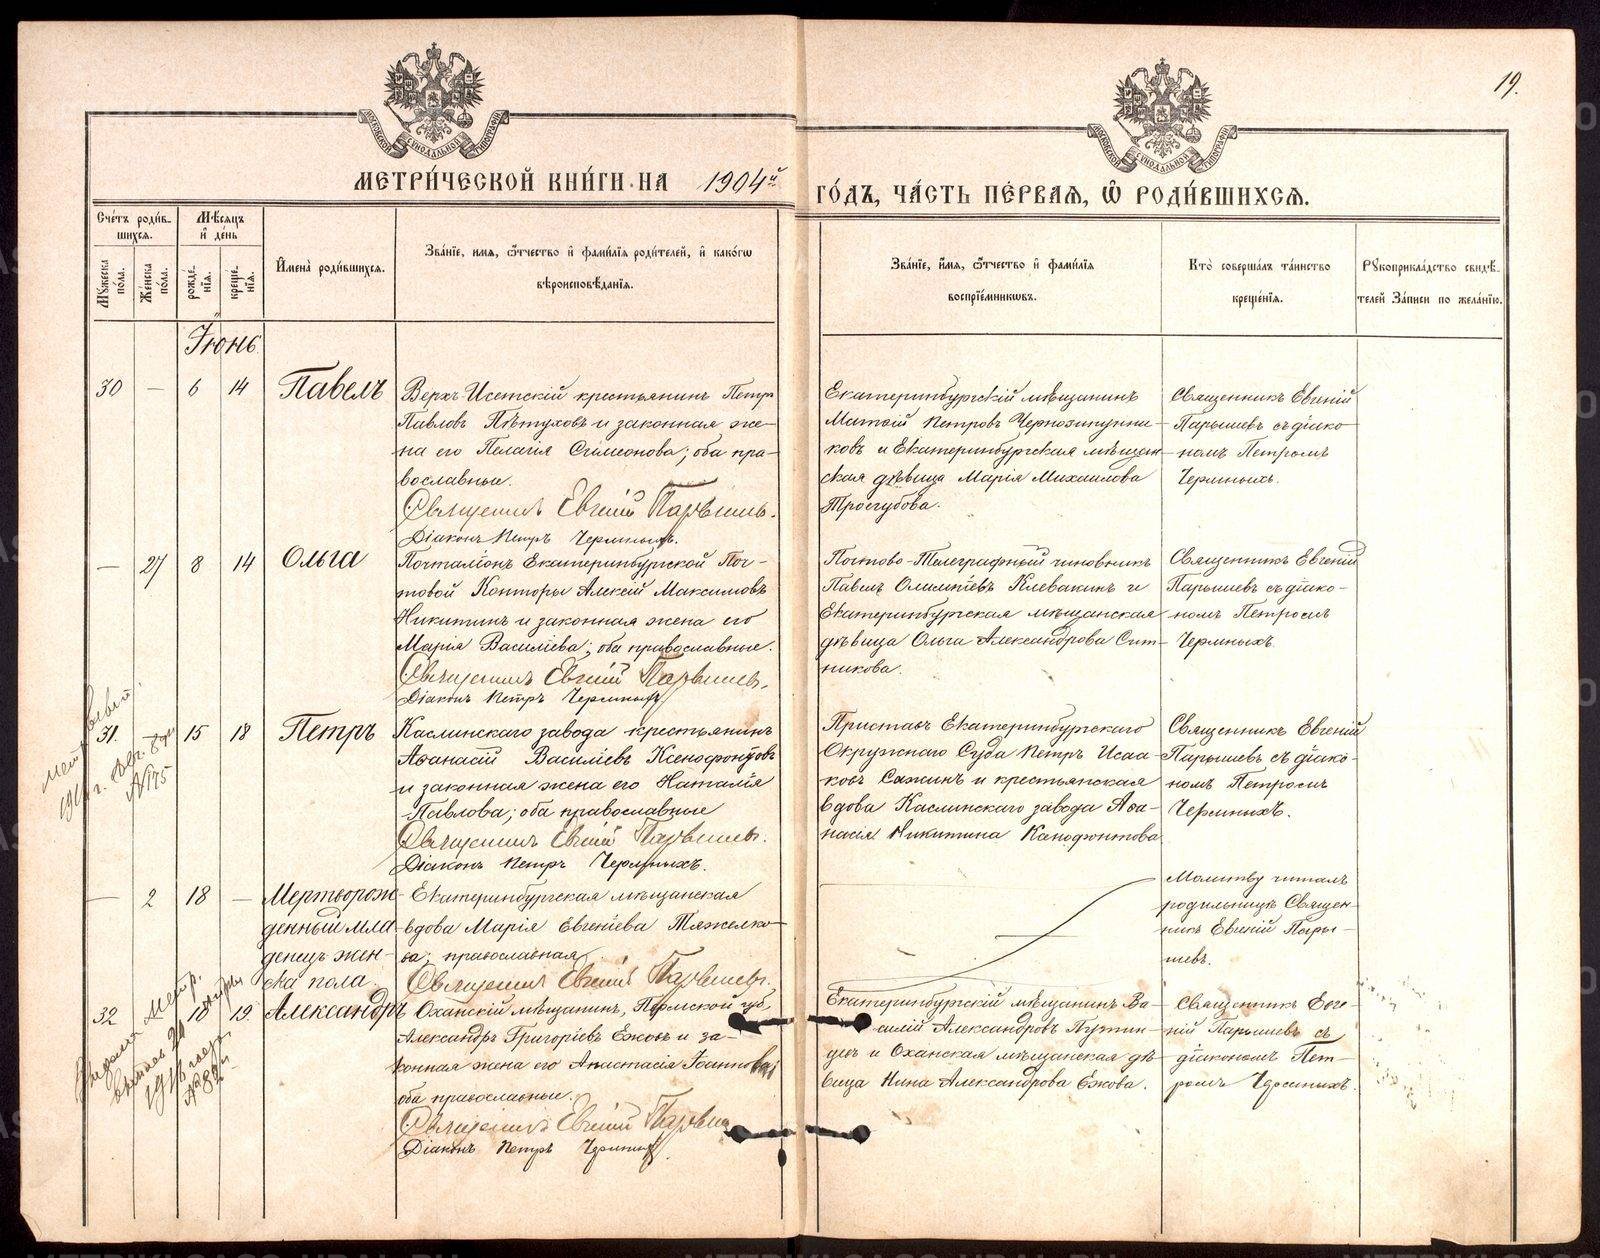 19.
МОСКОВСКОЙ СѴНОДАЛЬНОЙ ТИПОГРАФІИ
МОСКОВСКОЙ СѴНОДАЛЬНОЙ ТИПОГРАФІИ
МЕТРИ́ЧЕСКОЙ КНИ́ГИ НА 1904й ГО́ДЪ, ЧА́СТЬ ПЕ́РВАЯ, Ѽ РОДИ́ВШИХСЯ.
Сче́тъ роди́в-
шихся.
Му́жеска по́ла.
Же́нска по́ла.
Мѣ́сяцъ
и де́нь
рожде́-
нія.
креще́-
нія.
Имена̀ роди́вшихся.
Зва́ніе, имя, ѻтчество и фами́лія роди́телей, и како́гѡ
вѣроисповѣ́данія.
Зва́ніе, имя, ѻтчество и фами́лія
воспріе́мникѡвъ.
Кто̀ соверша́лъ та́инство
креще́нія.
Рукоприкла́дство свидѣ́-
телей за́писи по жела́нію.
Іюнь
30 — 6 14 Павелъ
Верхъ-Исетскій крестьянинъ Петръ
Павловъ Пѣтуховъ и законная же-
на его Пелагія Стимеонова; оба пра-
вославные.
Священникъ Евгеній Парышевъ.
Діаконъ Петръ Черминыхъ.
Екатеринбургскій мѣщанинъ
Матѳій Петровъ
и Екатеринбургская мѣщан-
ская дѣвица Марія Михаилова
Трогубова.
Священникъ Евгеній
Парышевъ съ діако-
номъ Петромъ
Черминыхъ.
— 27 8 14 Ольга
Почталіонъ Екатеринбургской Поч-
товой Конторы Алексій Максимовъ
Никитинъ и законная жена его
Марія Василіева; оба православные.
Священникъ Евгеній Парышевъ.
Діаконъ Петръ Черминыхъ
Почтово-Телеграфный чиновникъ
Павелъ Олимпіевъ Клевакинъ и
Екатеринбургская мѣщанская
дѣвица Ольга Александрова Сит-
никова.
Священникъ Евгеній
Парышевъ съ діако-
номъ Петромъ
Черминыхъ.
31. — 15 18 Петръ
Каслинскаго завода крестьянинъ
Аѳанасій Василіевъ Ксенофонтовъ
и законная жена его Наталія
Павлова; оба православные
Священникъ Евгеній Парышевъ.
Діаконъ Петръ Черминыхъ.
Приставъ Екатеринбургскаго
Окружнаго Суда Петръ Исаа-
ковъ Сажинъ и крестьянская
вдова Каслинскаго завода Аѳа-
насія Никитина
Священникъ Евгеній
Парышевъ съ діако-
номъ Петромъ
Черминыхъ.
№175
— 2 18 — Мертворож-
денный мла-
денецъ жен-
ска пола.
Екатеринбургская мѣщанская
вдова Марія Евгеніева Тяжелко-
ва; православная
Священникъ Евгеній Парышевъ.
Молитву читалъ
родильницѣ Священ-
никъ Евгеній Пары-
шевъ.
32 18 19 Александръ
Оханскій мѣщанинъ, Пермской губ.
Александръ Григоріевъ Ежовъ и за-
конная жена его Анастасія Іоаннова;
оба православные.
Священникъ Евгеній Парышевъ
Діаконъ Петръ Черминыхъ
Екатеринбургскій мѣщанинъ Ва-
силій Александровъ Путин-
цевъ и Оханская мѣщанская дѣ-
вица Нина Александрова Ежова.
Священникъ Евге-
ній Парышевъ съ
діакономъ Пет-
ромъ Черминыхъ.